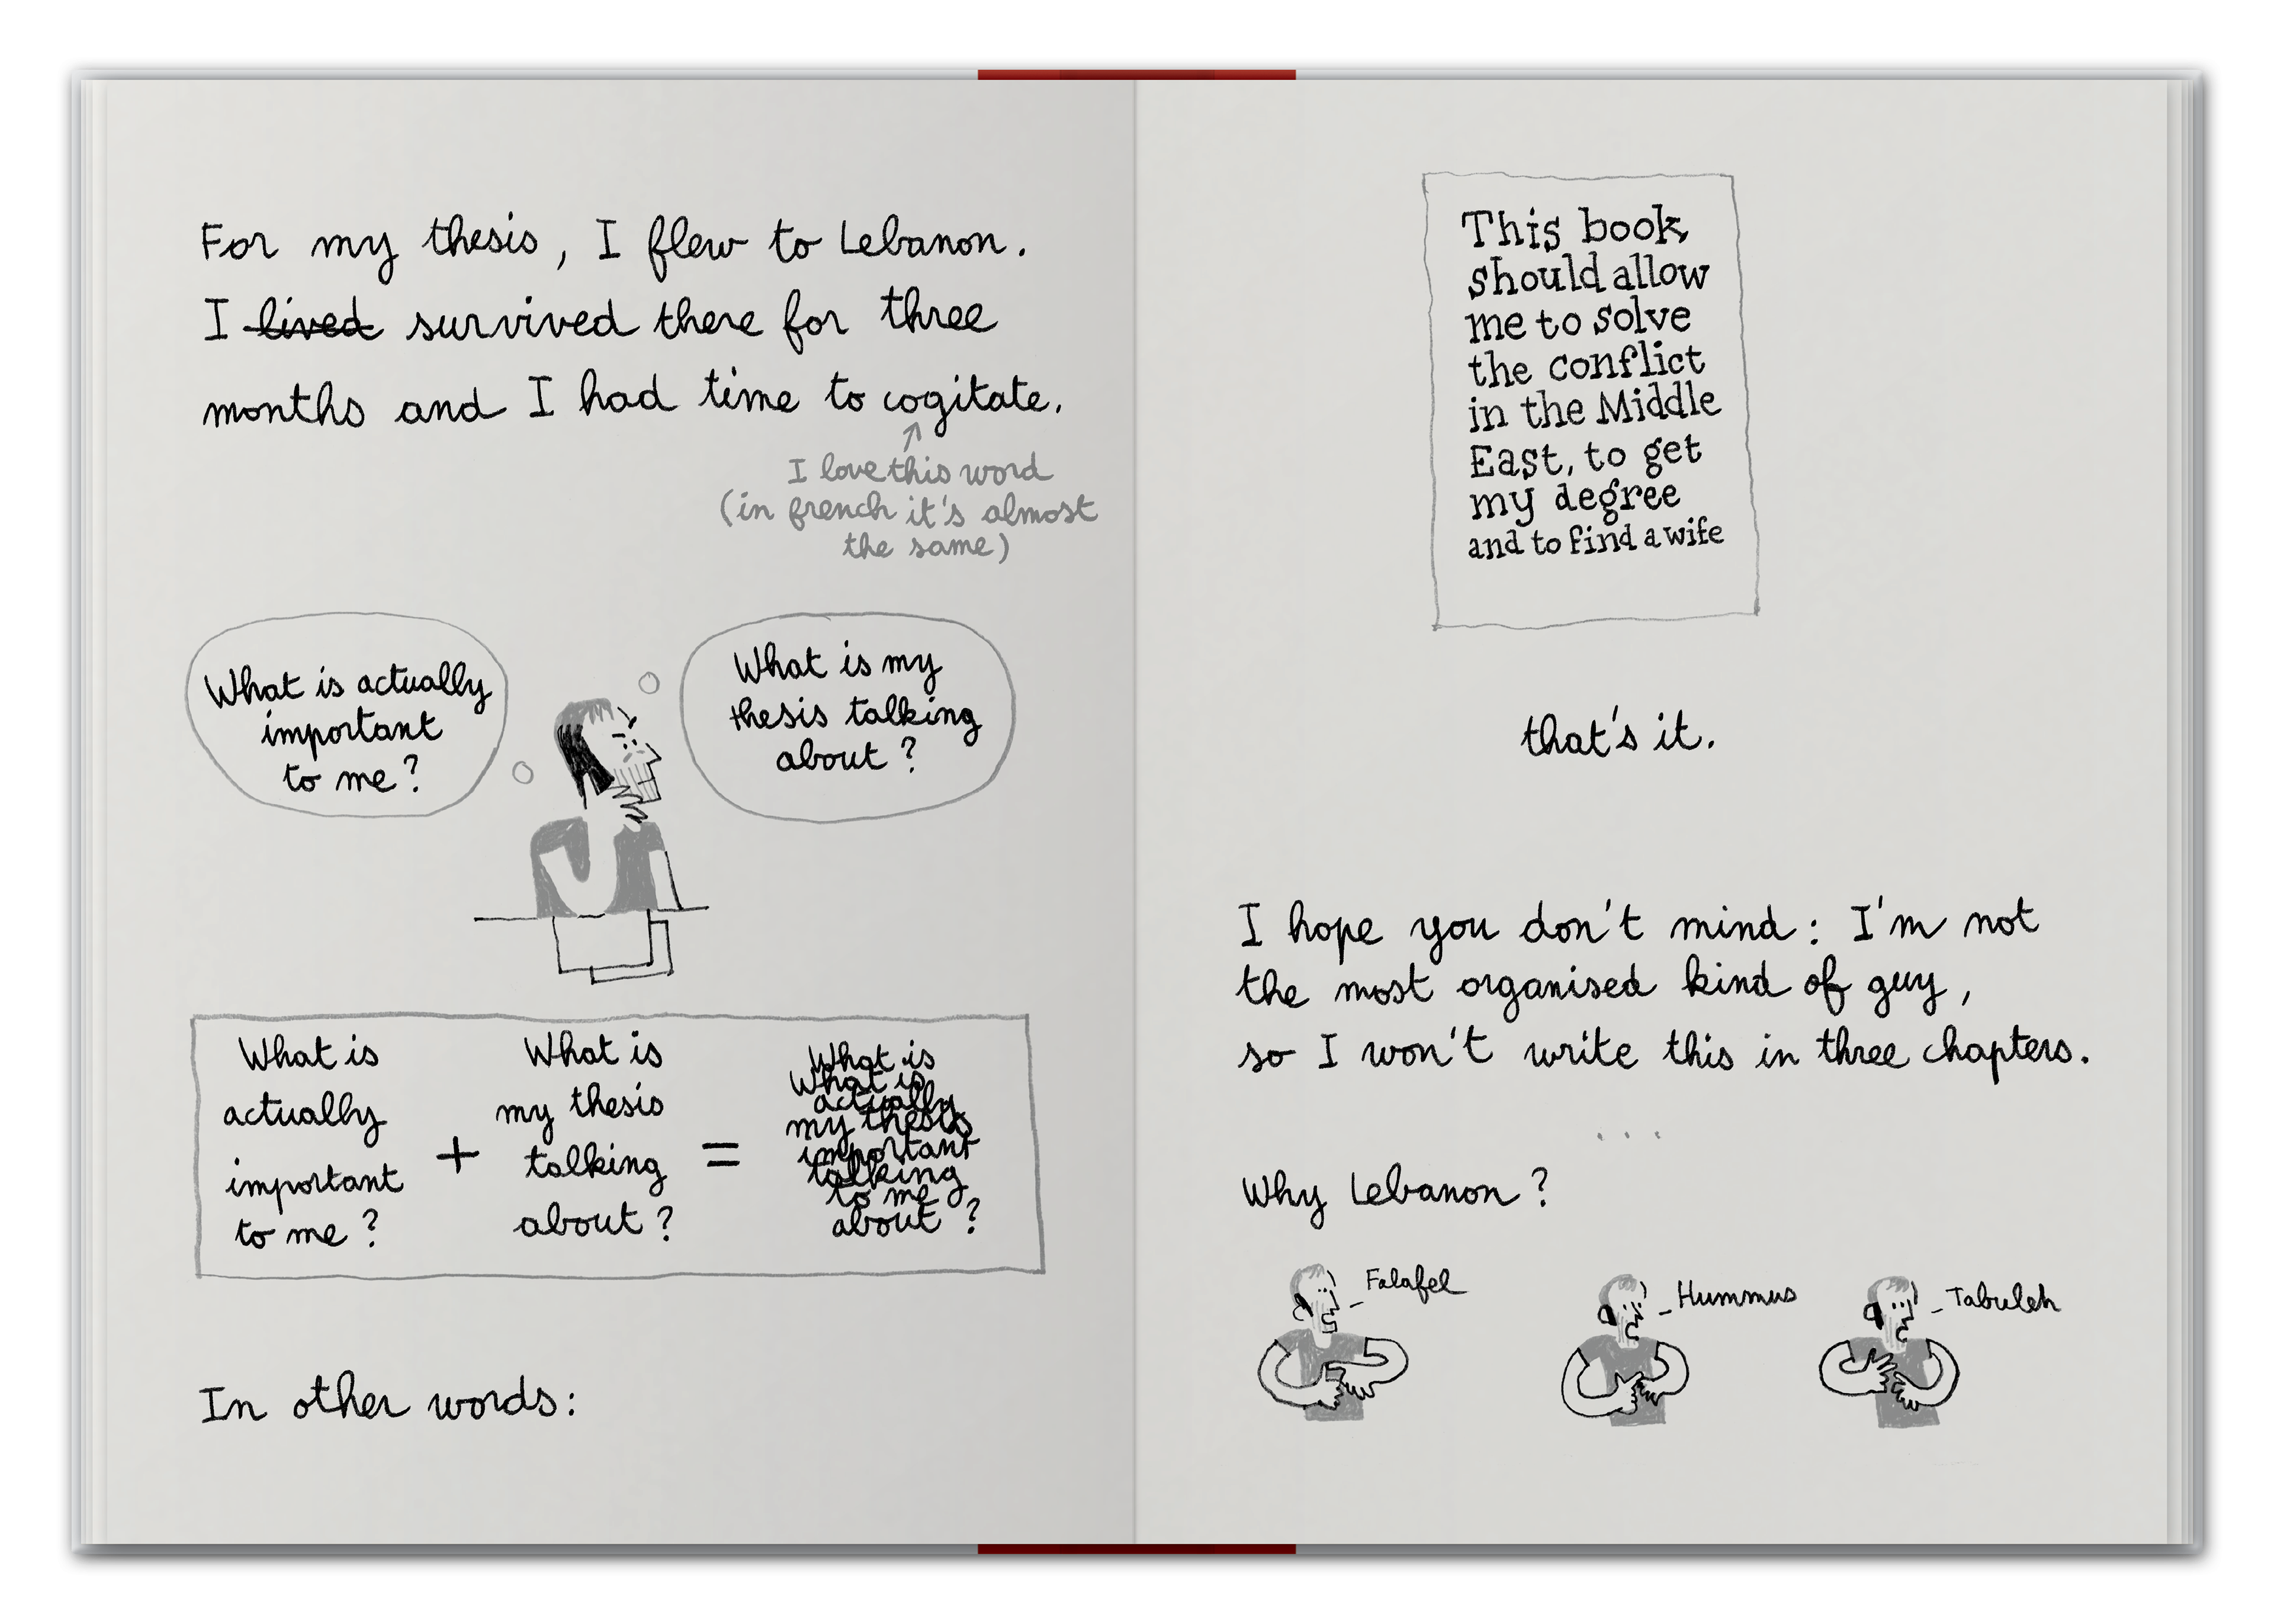 For my thesis, I flew to Lebanon.
I lived survived there for three
months and I had time to cogitate.
I love this word
(in french it's almost
the same)
What is actually
important
to me?
What is my
thesis talking
about?
What is
actually
important
to me?
+
What is
my thesis
talking
about?
=
What is
What is
actually
my thesis
important
talking
to me
about?
In other words:
This book
should allow
me to solve
the conflict
in the Middle
East, to get
my degree
and to find a wife
that's it.
I hope you don't mind: I'm not
the most organised kind of guy,
so I won't write this in three chapters.
...
Why Lebanon?
- Falafel
- Hummus
- Tabuleh